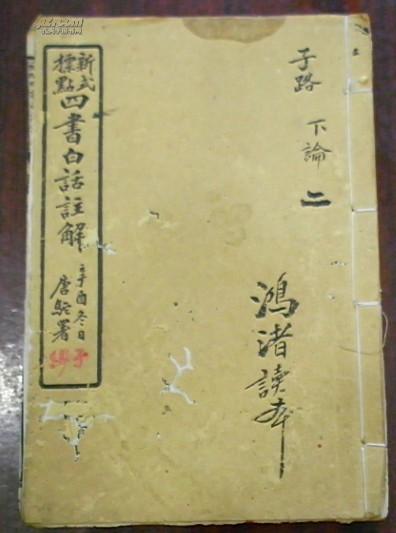 子路
下論
二
鴻渚讀本
新式
標點
四書白話註解
辛酉冬日
唐駝署